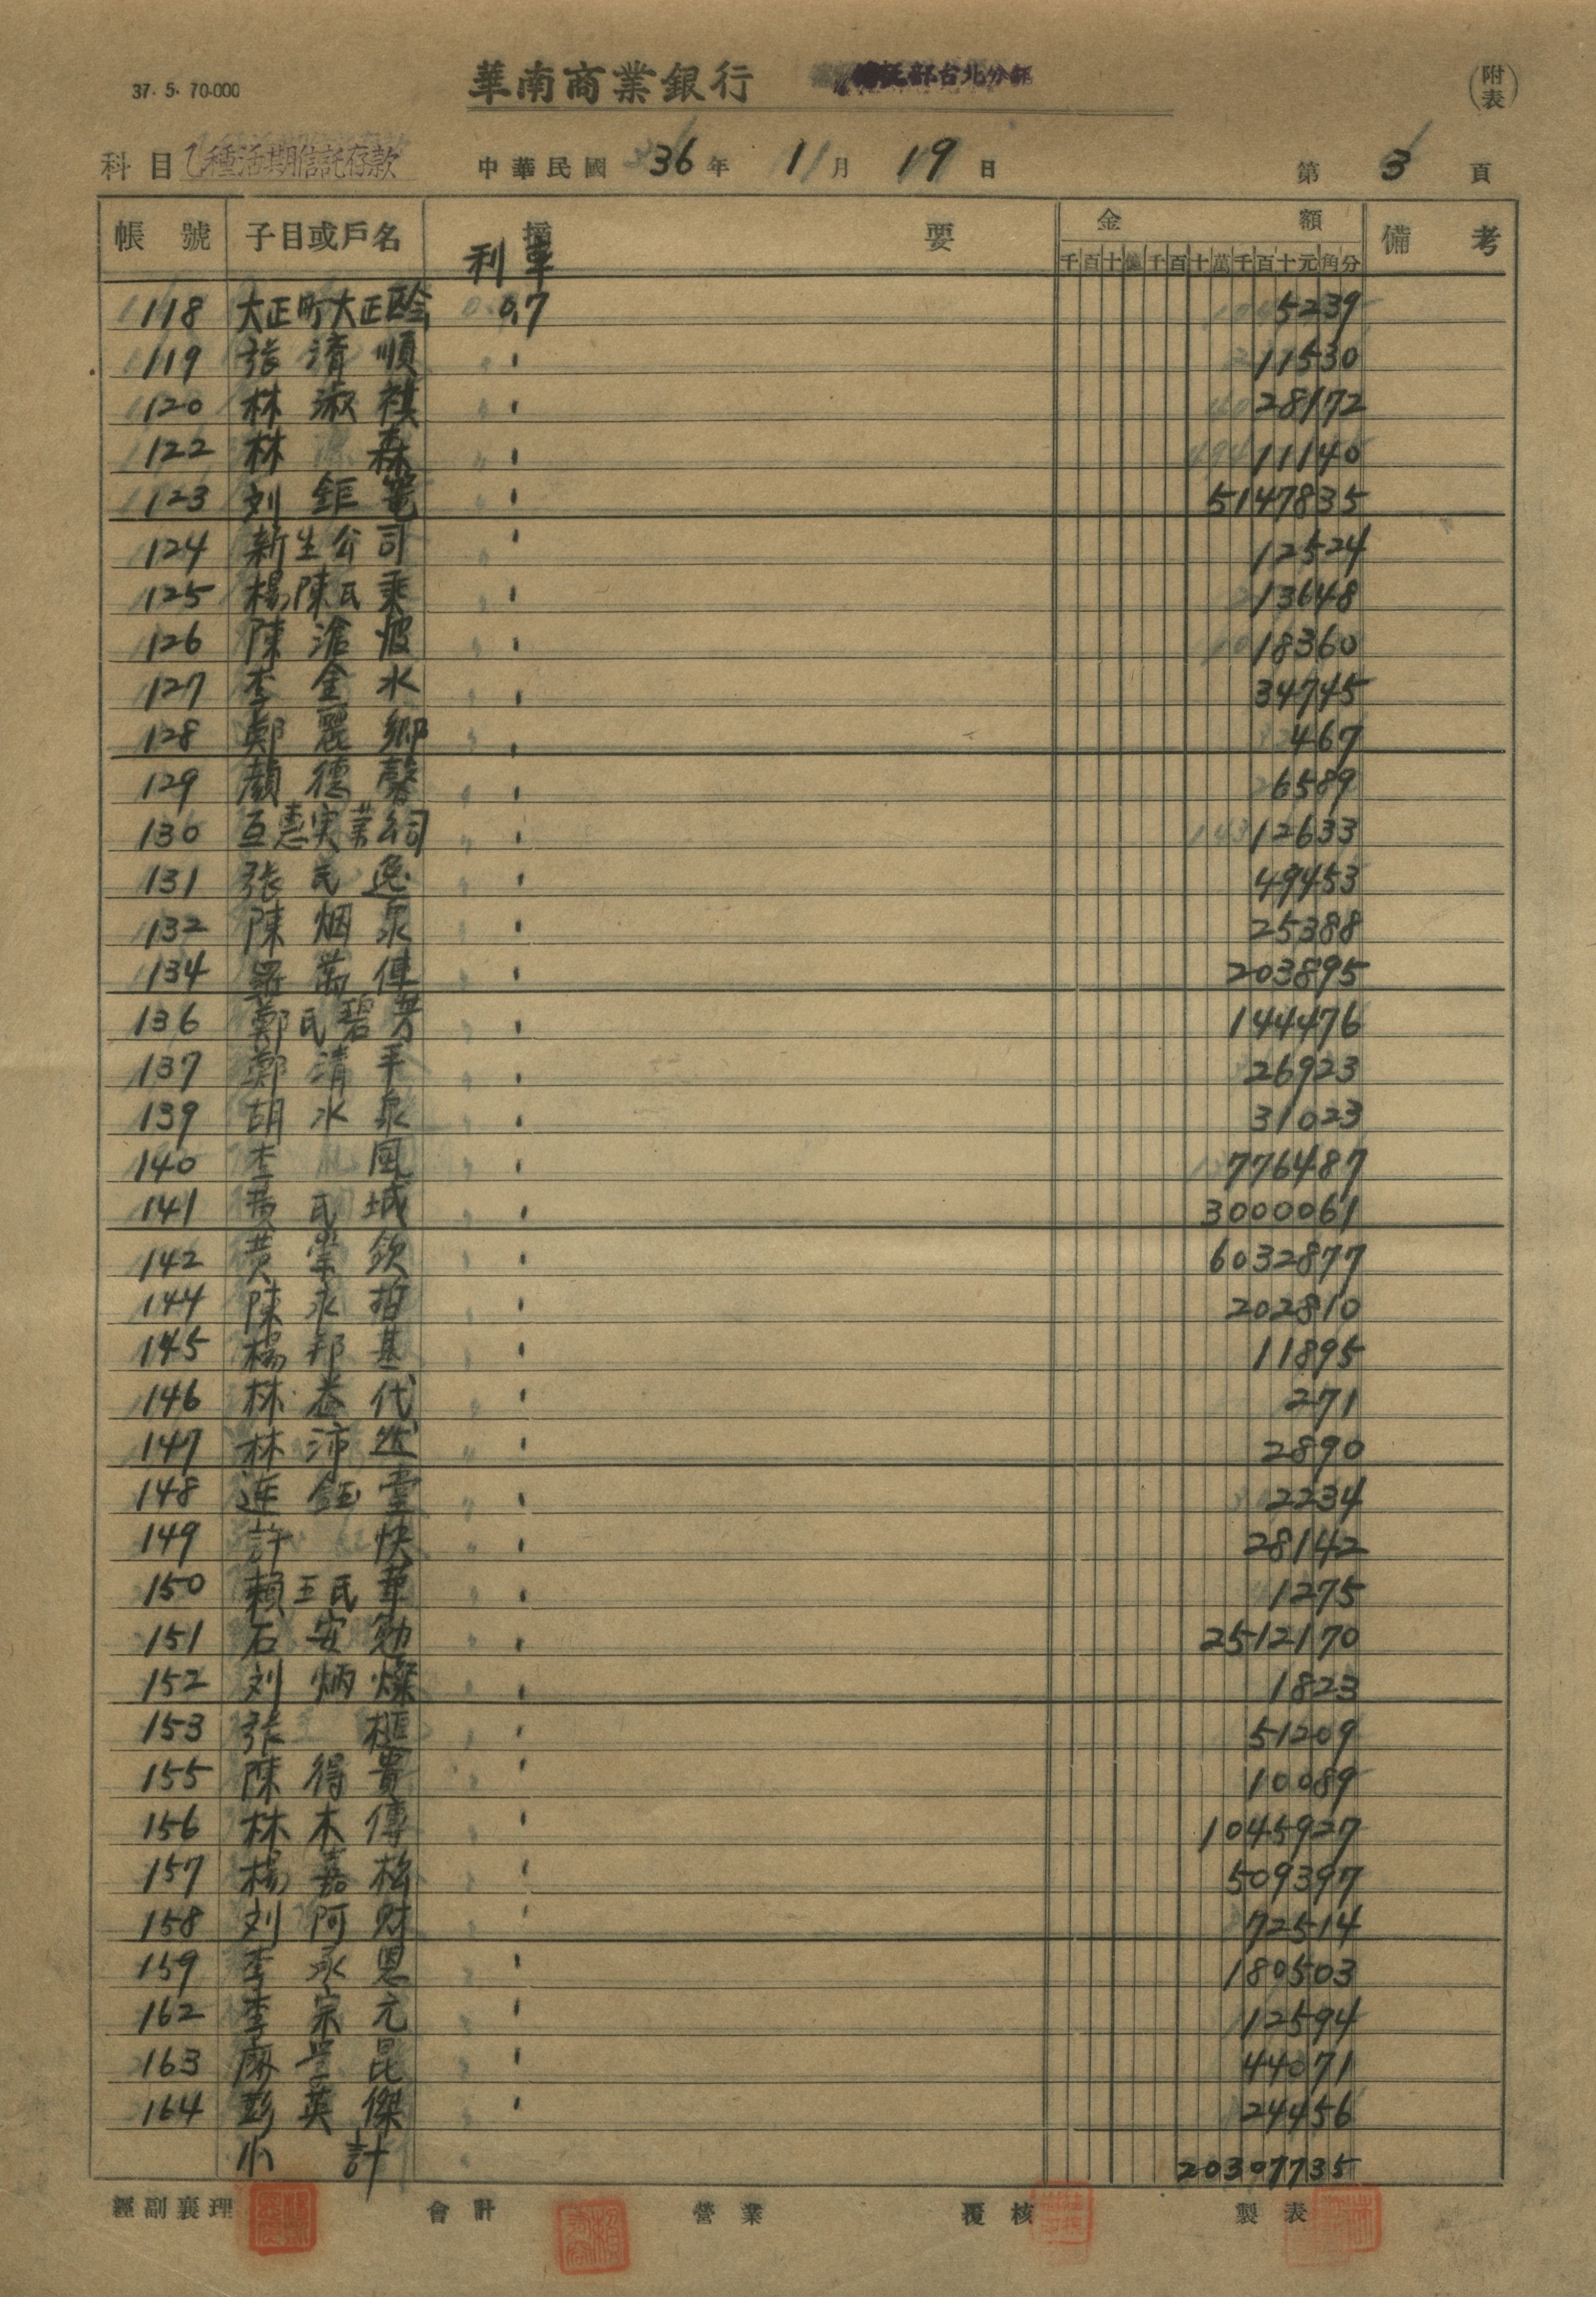 37. 5. 70.000
華南商業銀行 信託部台北分部
(附表)
科目 乙種活期信託存款 中華民國 36 年 11 月 19 日 第 3 頁
帳號 子目或戶名 摘要 金額 備考
利率 千百十億千百十萬千百十元角分
118 大正町大正區会 0.7 5239
119 張清順 〃 11530
120 林淑祺 〃 28172
122 林森 〃 11140
123 刘鉅篭 〃 5147835
124 新生公司 〃 12524
125 楊陳氏乘 〃 13648
126 陳滄波 〃 18360
127 李金水 〃 34745
128 鄭麗卿 〃 467
129 顏德馨 〃 6589
130 互惠実業公司 〃 12633
131 張氏逸 〃 49453
132 陳烟泉 〃 25388
134 羅萬俥 〃 203895
136 鄭氏碧芳 〃 144476
137 鄭清平 〃 26923
139 胡水泉 〃 31023
140 李風 〃 776487
141 黃氏城 〃 3000061
142 黃崇欽 〃 6032877
144 陳永哲 〃 202810
145 楊邦基 〃 11895
146 林卷代 〃 271
147 林沛然 〃 2890
148 連鈺雲 〃 2234
149 許快 〃 28142
150 賴王氏華 〃 1275
151 石安勉 〃 2512170
152 刘炳燦 〃 1823
153 張榧 〃 51209
155 陳得貴 〃 10089
156 林木傳 〃 1045927
157 楊嘉松 〃 509397
158 刘阿財 〃 72514
159 李承恩 〃 180503
162 李宗元 〃 12594
163 廖学昆 〃 44071
164 彭英傑 〃 24456
小計 20307735
經副襄理 會計 營業 覆核 製表